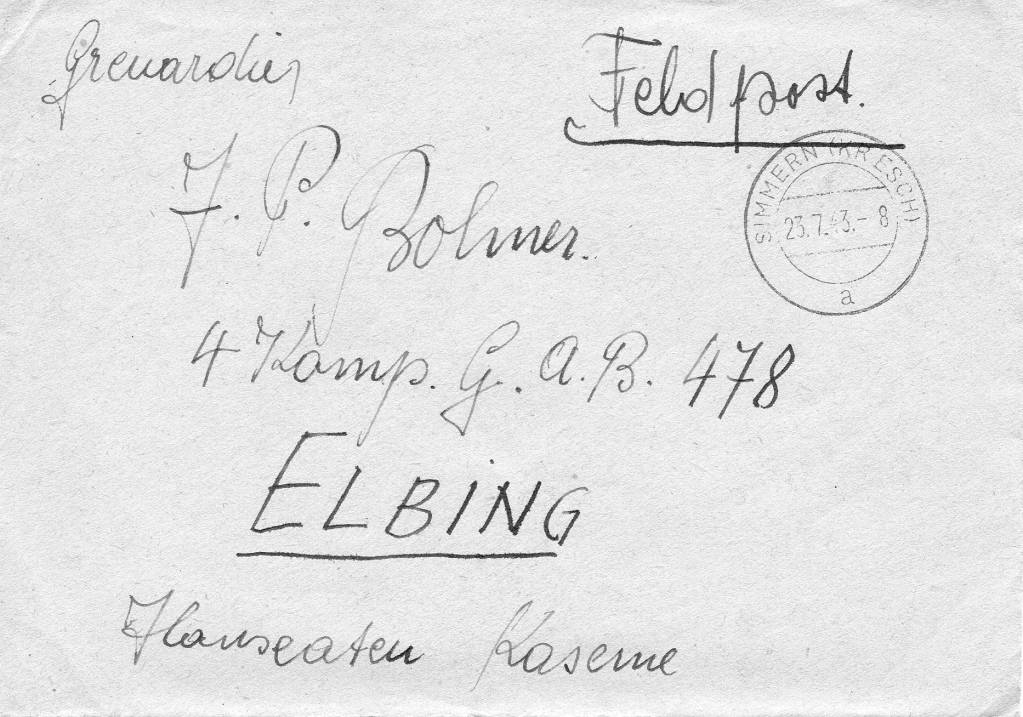 Grenardier
Feldpost.
J. P. Bolmer.
SIMMERN (KR ESCH)
23.7.43.- 8
a
4 Komp. G. A. B. 478
ELBING
Hanseaten Kaserne